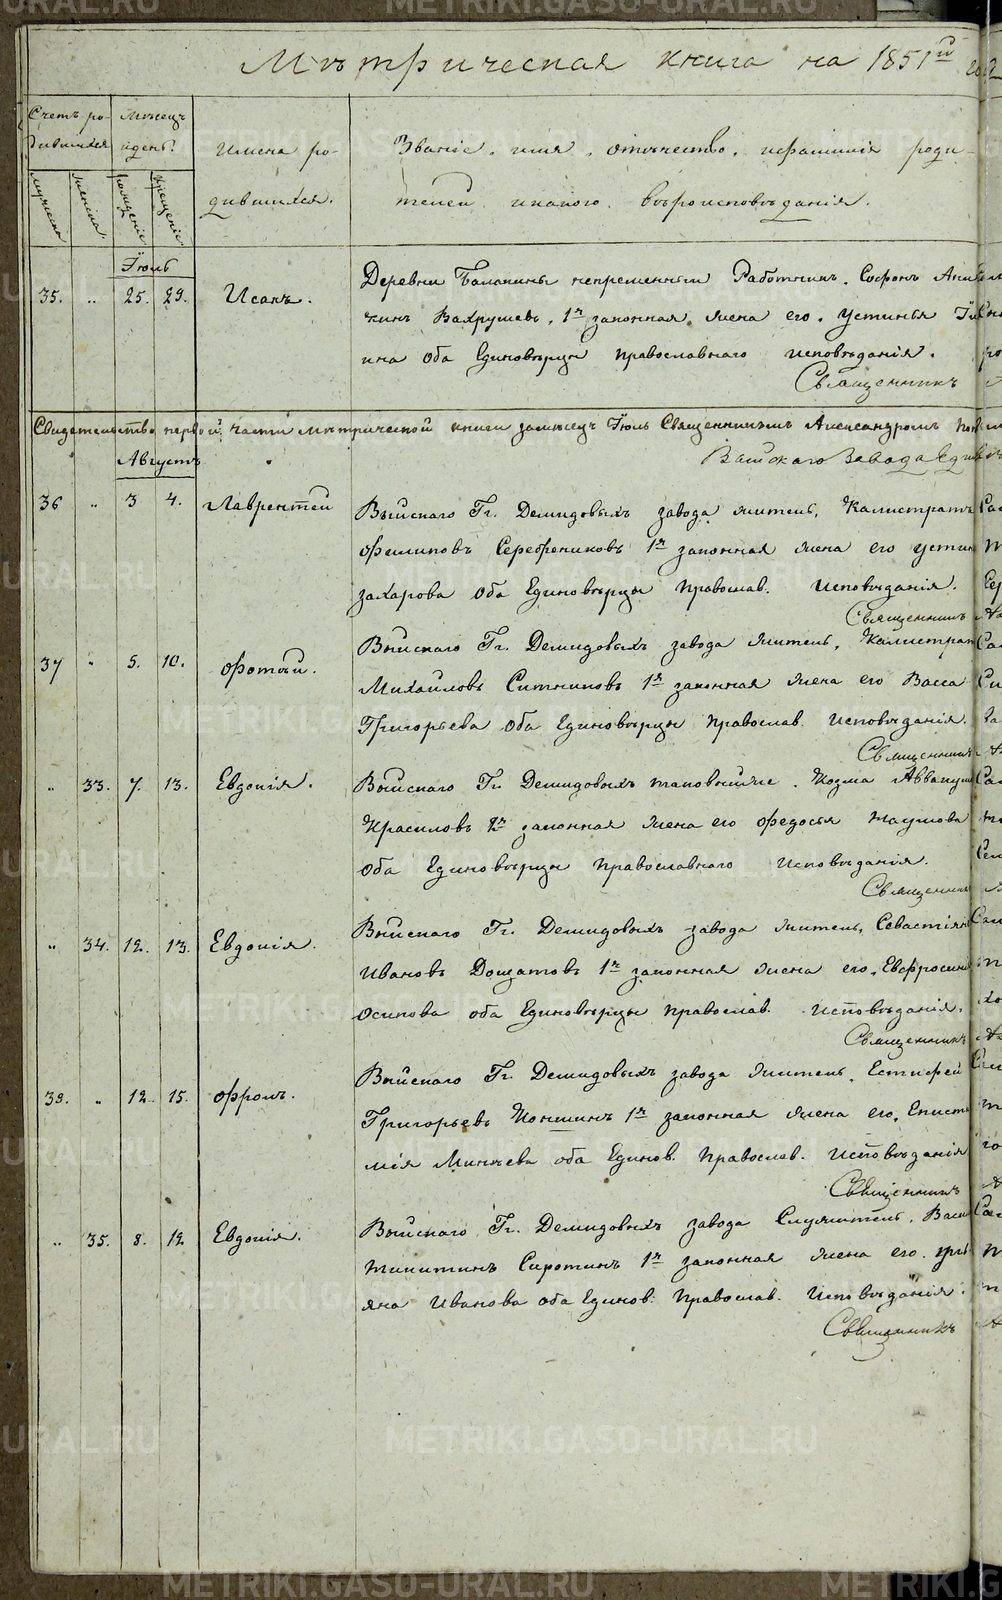 Мѣтрическая книга на 1851й
Счетъ ро-
дившихся
мѣсецъ
и день.
Имена ро-
дившихся.
Званіе, имя, отечество, и фамилія роди-
телей и какого вѣроисповѣданія.
мужеска
женска.
рожденіе
крещеніе
Іюль
35. „ 25. 29. Исакъ.
Деревни Балакины непременный Работникъ, Софонъ
кинъ Вахрушевъ, 1я законная жена его, Устинья
ина оба Единовѣрцы православнаго исповѣданія.
Священникъ
Свидетельство первой части мѣтрической книги замѣсецъ Іюль Священникъмъ Александромъ
Выйскаго Завода
Августъ
36 „ 3 4. Лаврентей
Выйскаго Гг. Демидовыхъ завода житель, Калистратъ
Филиповъ Серебрениковъ 1я законная жена его устин
захарова оба Единовѣрцы православ. исповѣданія.
Священникъ
37 „ 5. 10. Фотѣй.
Выйскаго Гг. Демидовыхъ завода житель, Калистрат
Михайловъ Ситниковъ 1я законная жена его Васса
Григорьева оба Единовѣрцы православ. исповѣданія.
Священникъ
„ 33. 7. 13. Евдокія.
Выйскаго Гг. Демидовыхъ таковыйже. Козма Аввакум
Красиловъ 2я законная жена его Федосья Наумова
оба Единовѣрцы православнаго исповѣданія.
Священник
„ 34. 12. 13. Евдокія.
Выйскаго Гг. Демидовыхъ завода житель, Севастіян
Ивановъ Дощатовъ 1я законная жена его, Евфросинья
осипова оба Единовѣрцы православ. исповѣданія.
Священникъ
38. „ 12. 15. Фролъ.
Выйскаго Гг. Демидовыхъ завода житель, Естифей
Григорьевъ Коншинъ 1я законная жена его, Еписти
мія Минѣева оба Единов. православ. исповѣданія
Священникъ
„ 35. 8. 12 Евдокія.
Выйскаго Гг. Демидовыхъ завода Служитель, Васи
Никитинъ Сиротинъ 1я законная жена его
яна Иванова оба Единов. православ. исповѣданія.
Священникъ
METRIKI.GASO-URAL.RU